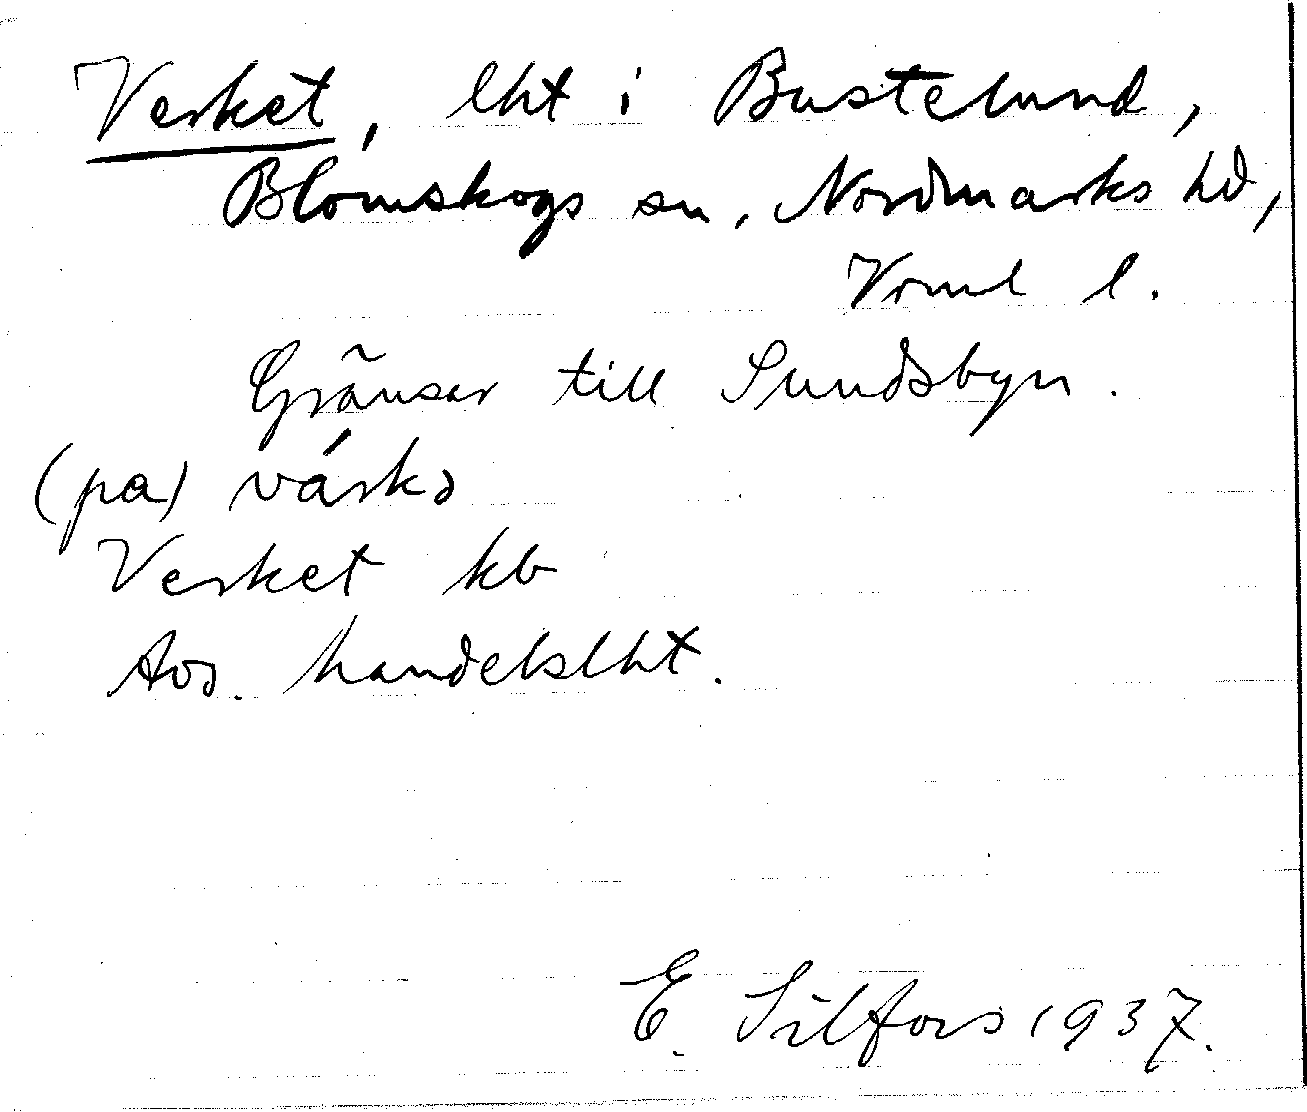 Verket, lht i Bustelund,
Blomskogs sn, Nordmarks hd,
Vrml l.
Gränsar till Sundsbyn.
(pa) várkə
Verket kb
Avs. handelslht.
E. Silfors 1937.